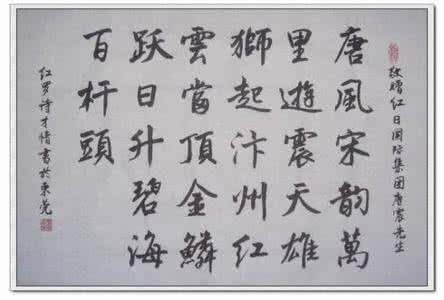 敬赠红日国际集团唐震先生
唐風宋韻萬
里遊震天雄
獅起汴州紅
雲當頂金鱗
跃日升碧海
百杆頭
红罗诗才情書於东莞